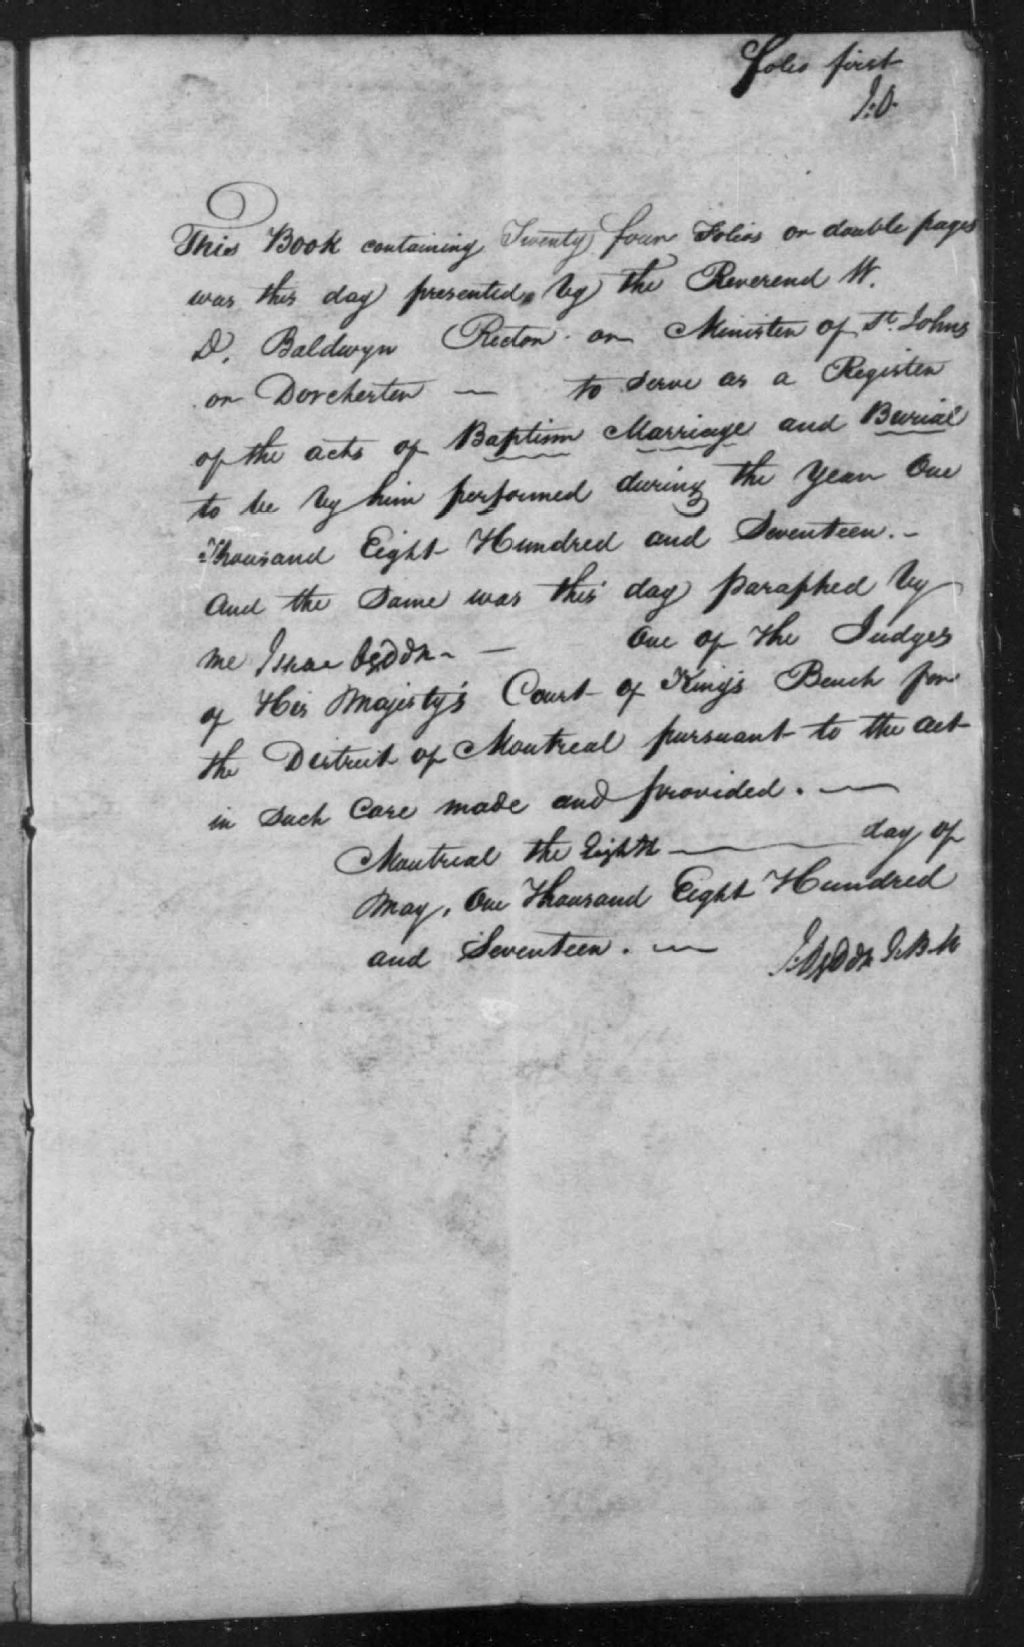 Folio first
I:O.
This Book containing Twenty four Folios or double pages
was this day presented by the Reverend W.
D. Baldwyn Rector or Minister of St. Johns
or Dorchester — to serve as a Register
of the acts of Baptism Marriage and Burial
to be by him performed during the year One
Thousand Eight Hundred and Seventeen. -
And the Same was this day paraphed by
me Isaac Ogden - — One of the Judges
of His Majesty's Court of King's Bench for
the District of Montreal pursuant to the act
in such Case made and provided. —
Montreal the Eighth — day of
May, One Thousand Eight Hundred
and Seventeen. —
I: Ogden J. B. R